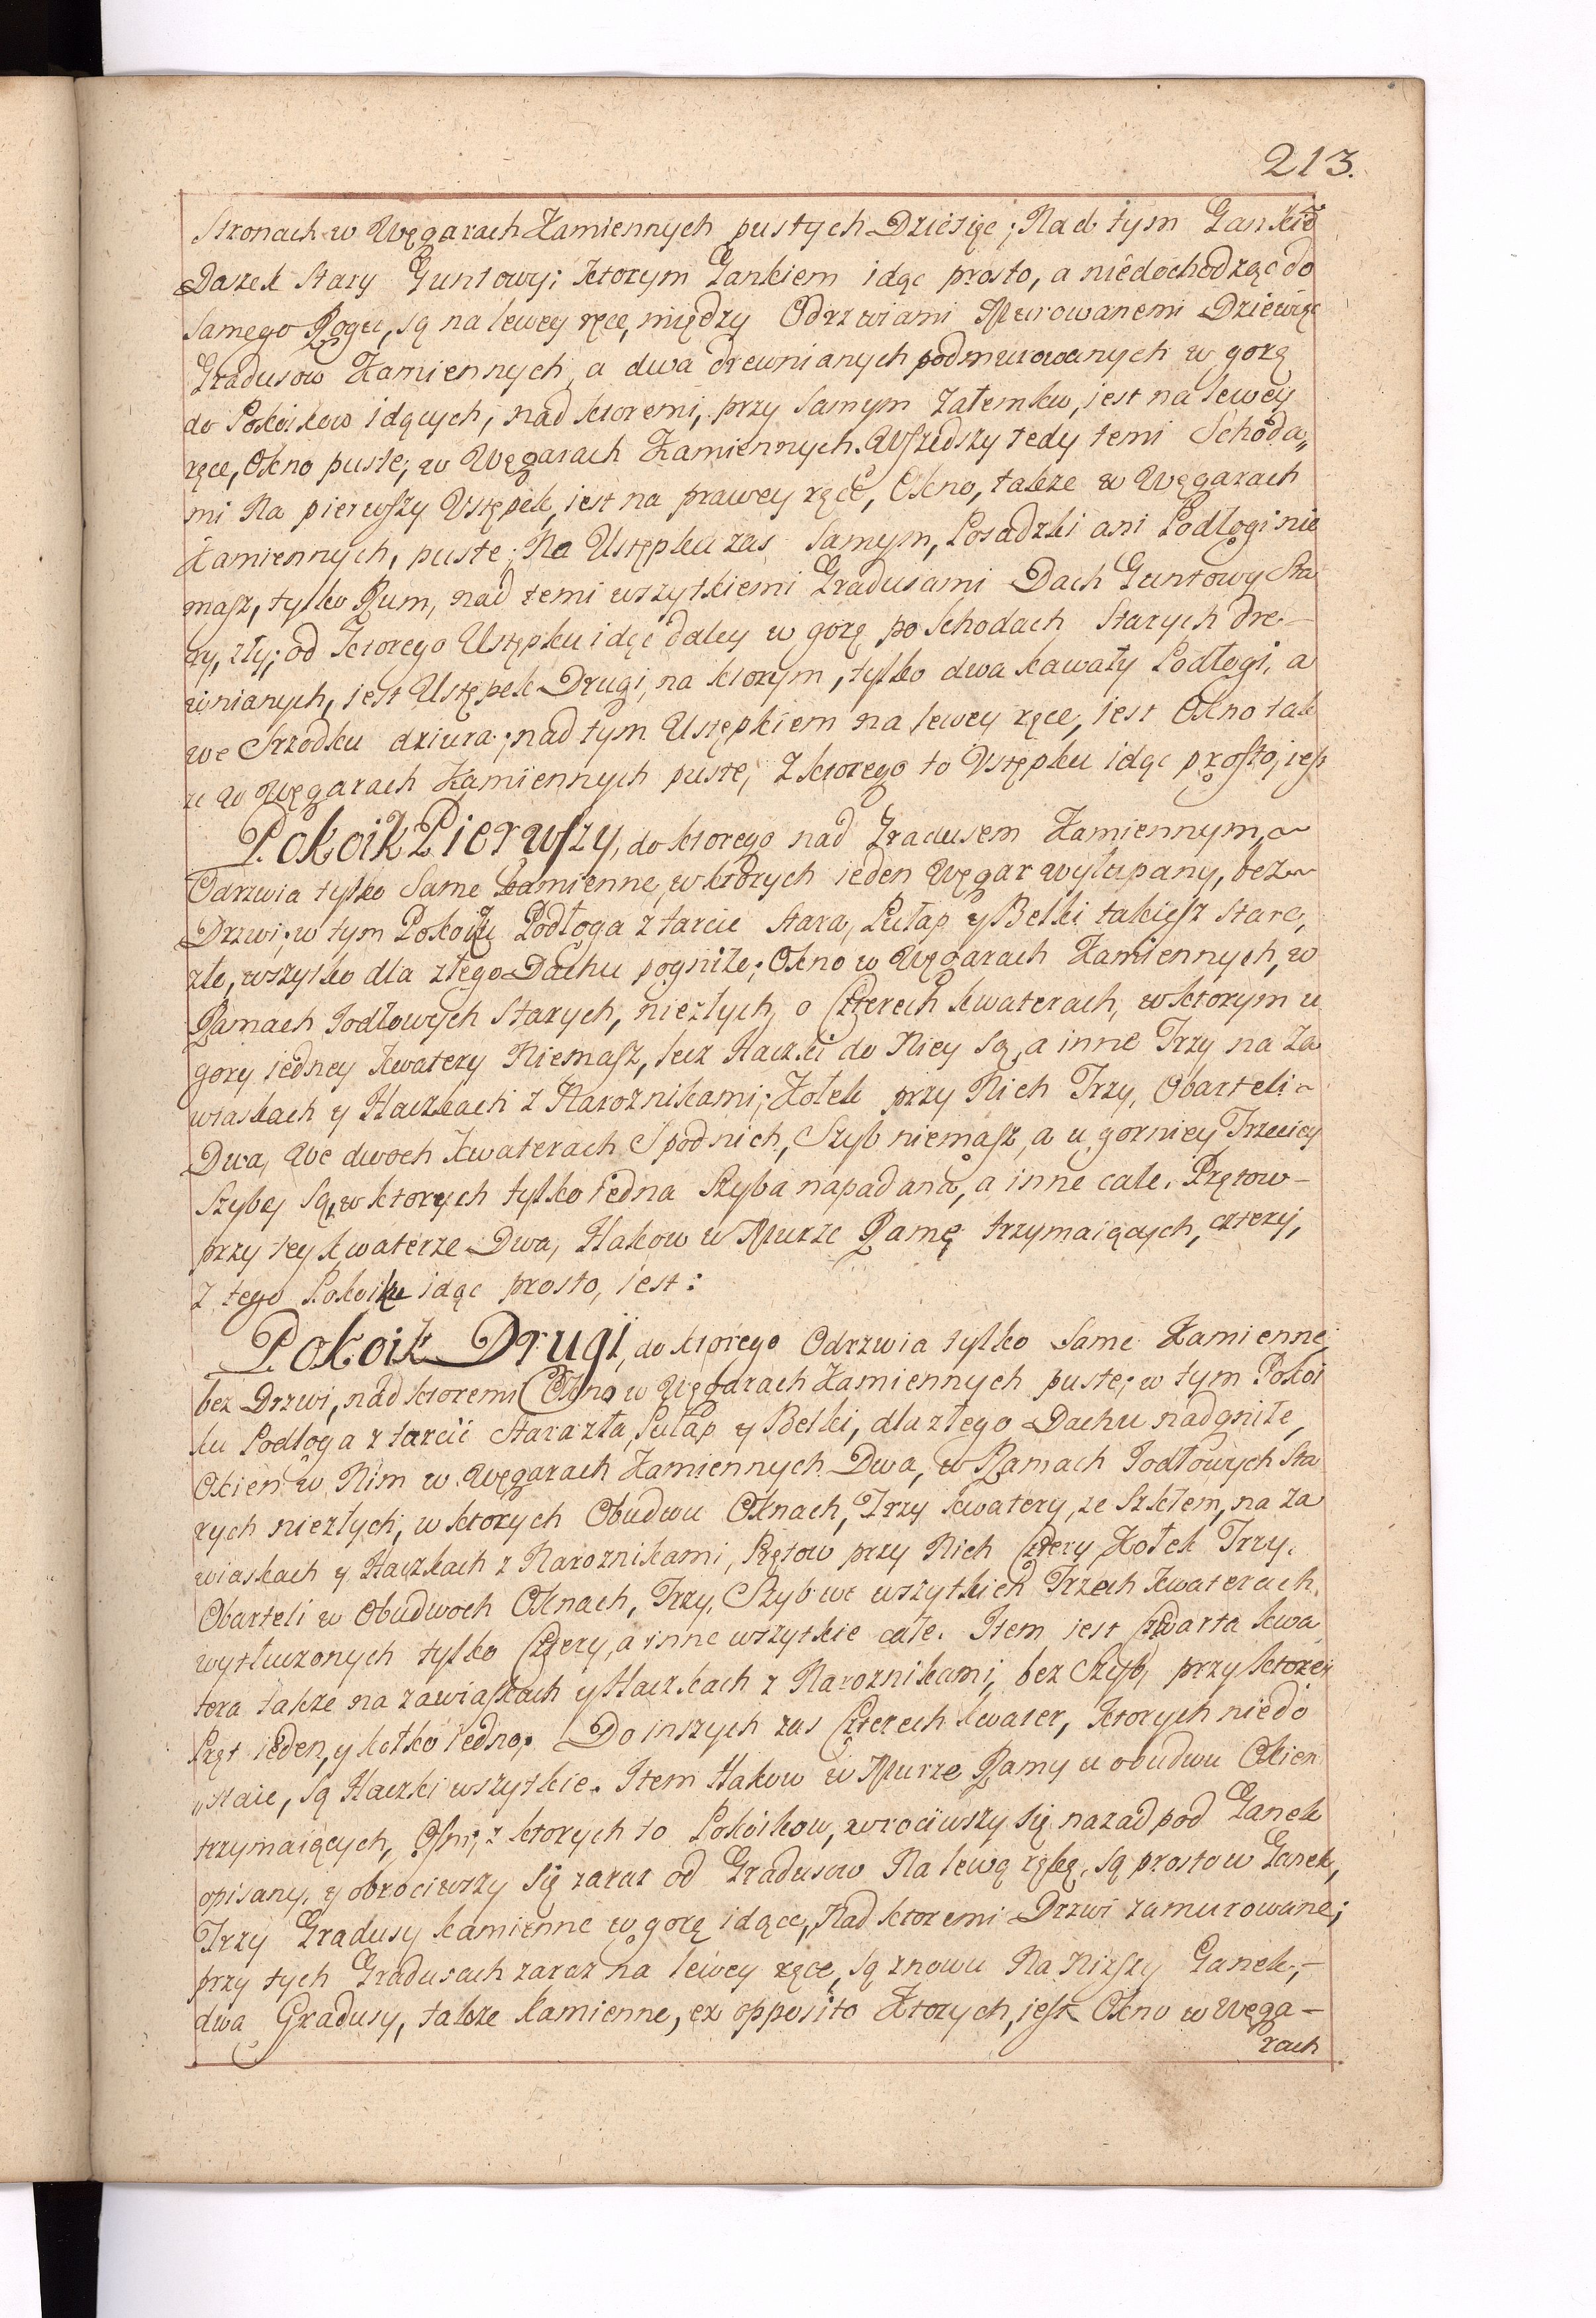 213.
Stronach w Węgarach Kamiennych pustych Dziesięc; Nad tym Gankiē
Daszek Stary Guntowy; ktorym Gankiem idąc prosto, a niedochodząc do
samego Rogu, są na lewey ręce, między Odrzwiami Murowanemi Dziewięc
Gradusow Kamiennych, a dwa drewnianych podmurowanych w gorę
do Pokoikow idących, nad ktoremi, przy samym Załemku, iest na lewey
ręce, Okno puste, w Węgarach Kamiennych. Wszedszy tedy temi Schoda„
mi Na pierwszy Ustępek, iest na prawey ręce, Okno, także w Węgarach
Kamiennych, puste; Na Ustępku zas samym, Posadzki ani Podłogi nie
masz, tylko Rum, nad temi wszytkiemi Gradusami Dach Guntowy Sta
ry, zły; od ktorego Ustępku idąc daley w gorę po Schodach Starych dre-
wnianych, iest Ustępek Drugi, na ktorym, tylko dwa kawały Podłogi, a
we Srzodku dziura; nad tym Ustępkiem na lewey ręce, iest Okno tak
że w Węgarach Kamiennych puste, Z ktorego to Ustępku idąc prosto, iest
Pokoik Pierwszy, do ktorego nad Gradusem Kamiennym ~
Odrzwia tylko Same kamienne, w ktorych ieden Węgar wyłupany, bez ~
Drzwi; w tym Pokoiku Podłoga z tarcic Stara, Pułap y Belki takiesz Stare,
złe, wszytko dla złego Dachu pogniłe; Okno w Węgarach Kamiennych, w
Ramach Jodłowych Starych, niezłych, o Czterech kwaterach, w ktorym u
gory iedney Kwatery Niemasz, lecz Haczki do Niey są, a inne Trzy na Za
wiaskach y Haczkach z Naroznikami; Kołek przy Nich Trzy, Obarteli ~
Dwa, We dwoch Kwaterach Spodnich, Szyb niemasz, a u gorniey Trzeciey
Szyby są, w ktorych tylko iedna Szyba napadana, a inne całe. Prętow -
przy tey kwaterze Dwa, Hakow w Murze Ramę trzymaiących, cztery,
Z tego Pokoiku idąc prosto, iest:
Pokoik Drugi, do ktorego Odrzwia tylko Same Kamienne
bez Drzwi, nad ktoremi Okno w Węgarach Kamiennych puste; w tym Pokoi
ku Podłoga z tarcic Stara zła, Pułap y Belki, dla złego Dachu nadgniłe,
Okien w Nim w Węgarach Kamiennych Dwa, w Ramach Jodłowych Sta
rych niezłych; w ktorych Obudwu Oknach, Trzy kwatery, ze Szkłem, na Za
wiaskach y Haczkach z Naroznikami, Prętow przy Nich Cztery Kołek Trzy.
Obarteli w Obudwoch Oknach, Trzy, Szyb we wszytkich Trzech Kwaterach.
wytłuczonych tylko Cztery, a inne wszytkie całe. Item iest Czwarta kwa
tera także na zawiaskach y Haczkach z Naroznikami, bez Szyb, przy ktorey
Pręt ieden, y kołko iedno. Do inszych zas Czterech kwater, ktorych niedo
„staie, są Haczki wszytkie. Item Hakow w Murze Ramy u obudwu Okien
trzymaiących, Osm; z ktorych to Pokoikow, wrociwszy się nazad pod Ganek
opisany, y obrociwszy się zaraz od Gradusow Na lewą rękę, są prosto w Ganek,
Trzy Gradusy kamienne w gorę idące, Nad ktoremi Drzwi zamurowane;
przy tych Gradusach zaraz na lewey ręce, są znowu Na Niższy Ganek, -
dwa Gradusy, także kamienne, ex opposito Ktorych, iest Okno w Węga-
rach